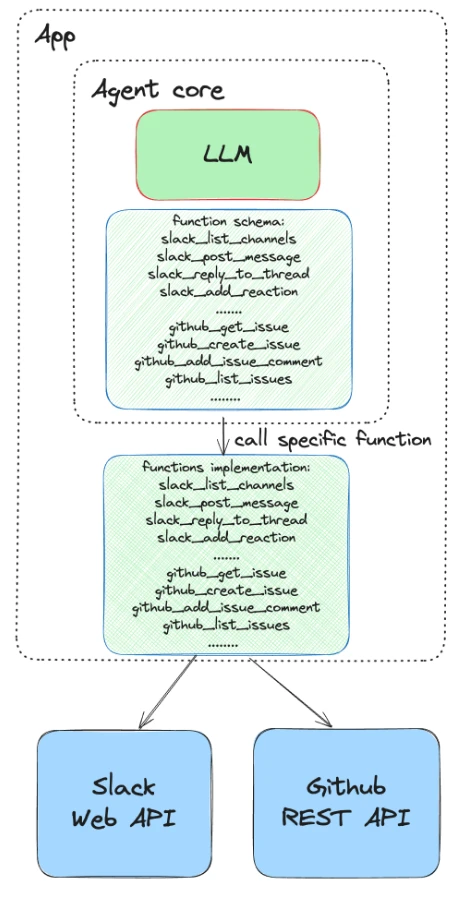 App
Agent core
LLM
function schema:
slack_list_channels
slack_post_message
slack_reply_to_thread
slack_add_reaction
.......
github_get_issue
github_create_issue
github_add_issue_comment
github_list_issues
........
call specific function
functions implementation:
slack_list_channels
slack_post_message
slack_reply_to_thread
slack_add_reaction
.......
github_get_issue
github_create_issue
github_add_issue_comment
github_list_issues
........
Slack
Web API
Github
REST API